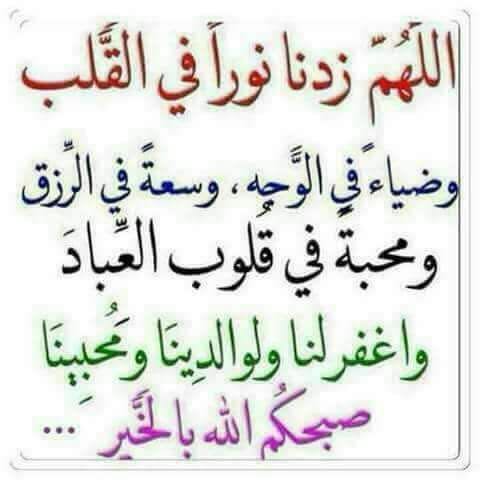 اللَهُمّ زدنا نوراً في القَلب
وضياءً في الوَجه، وسعةً في الرِّزق
ومحبةً في قُلوب العِّبادَ
واغفر لنا ولوالدِينَا ومُحبِينَا
صبحكُم الله بالخَّير ...